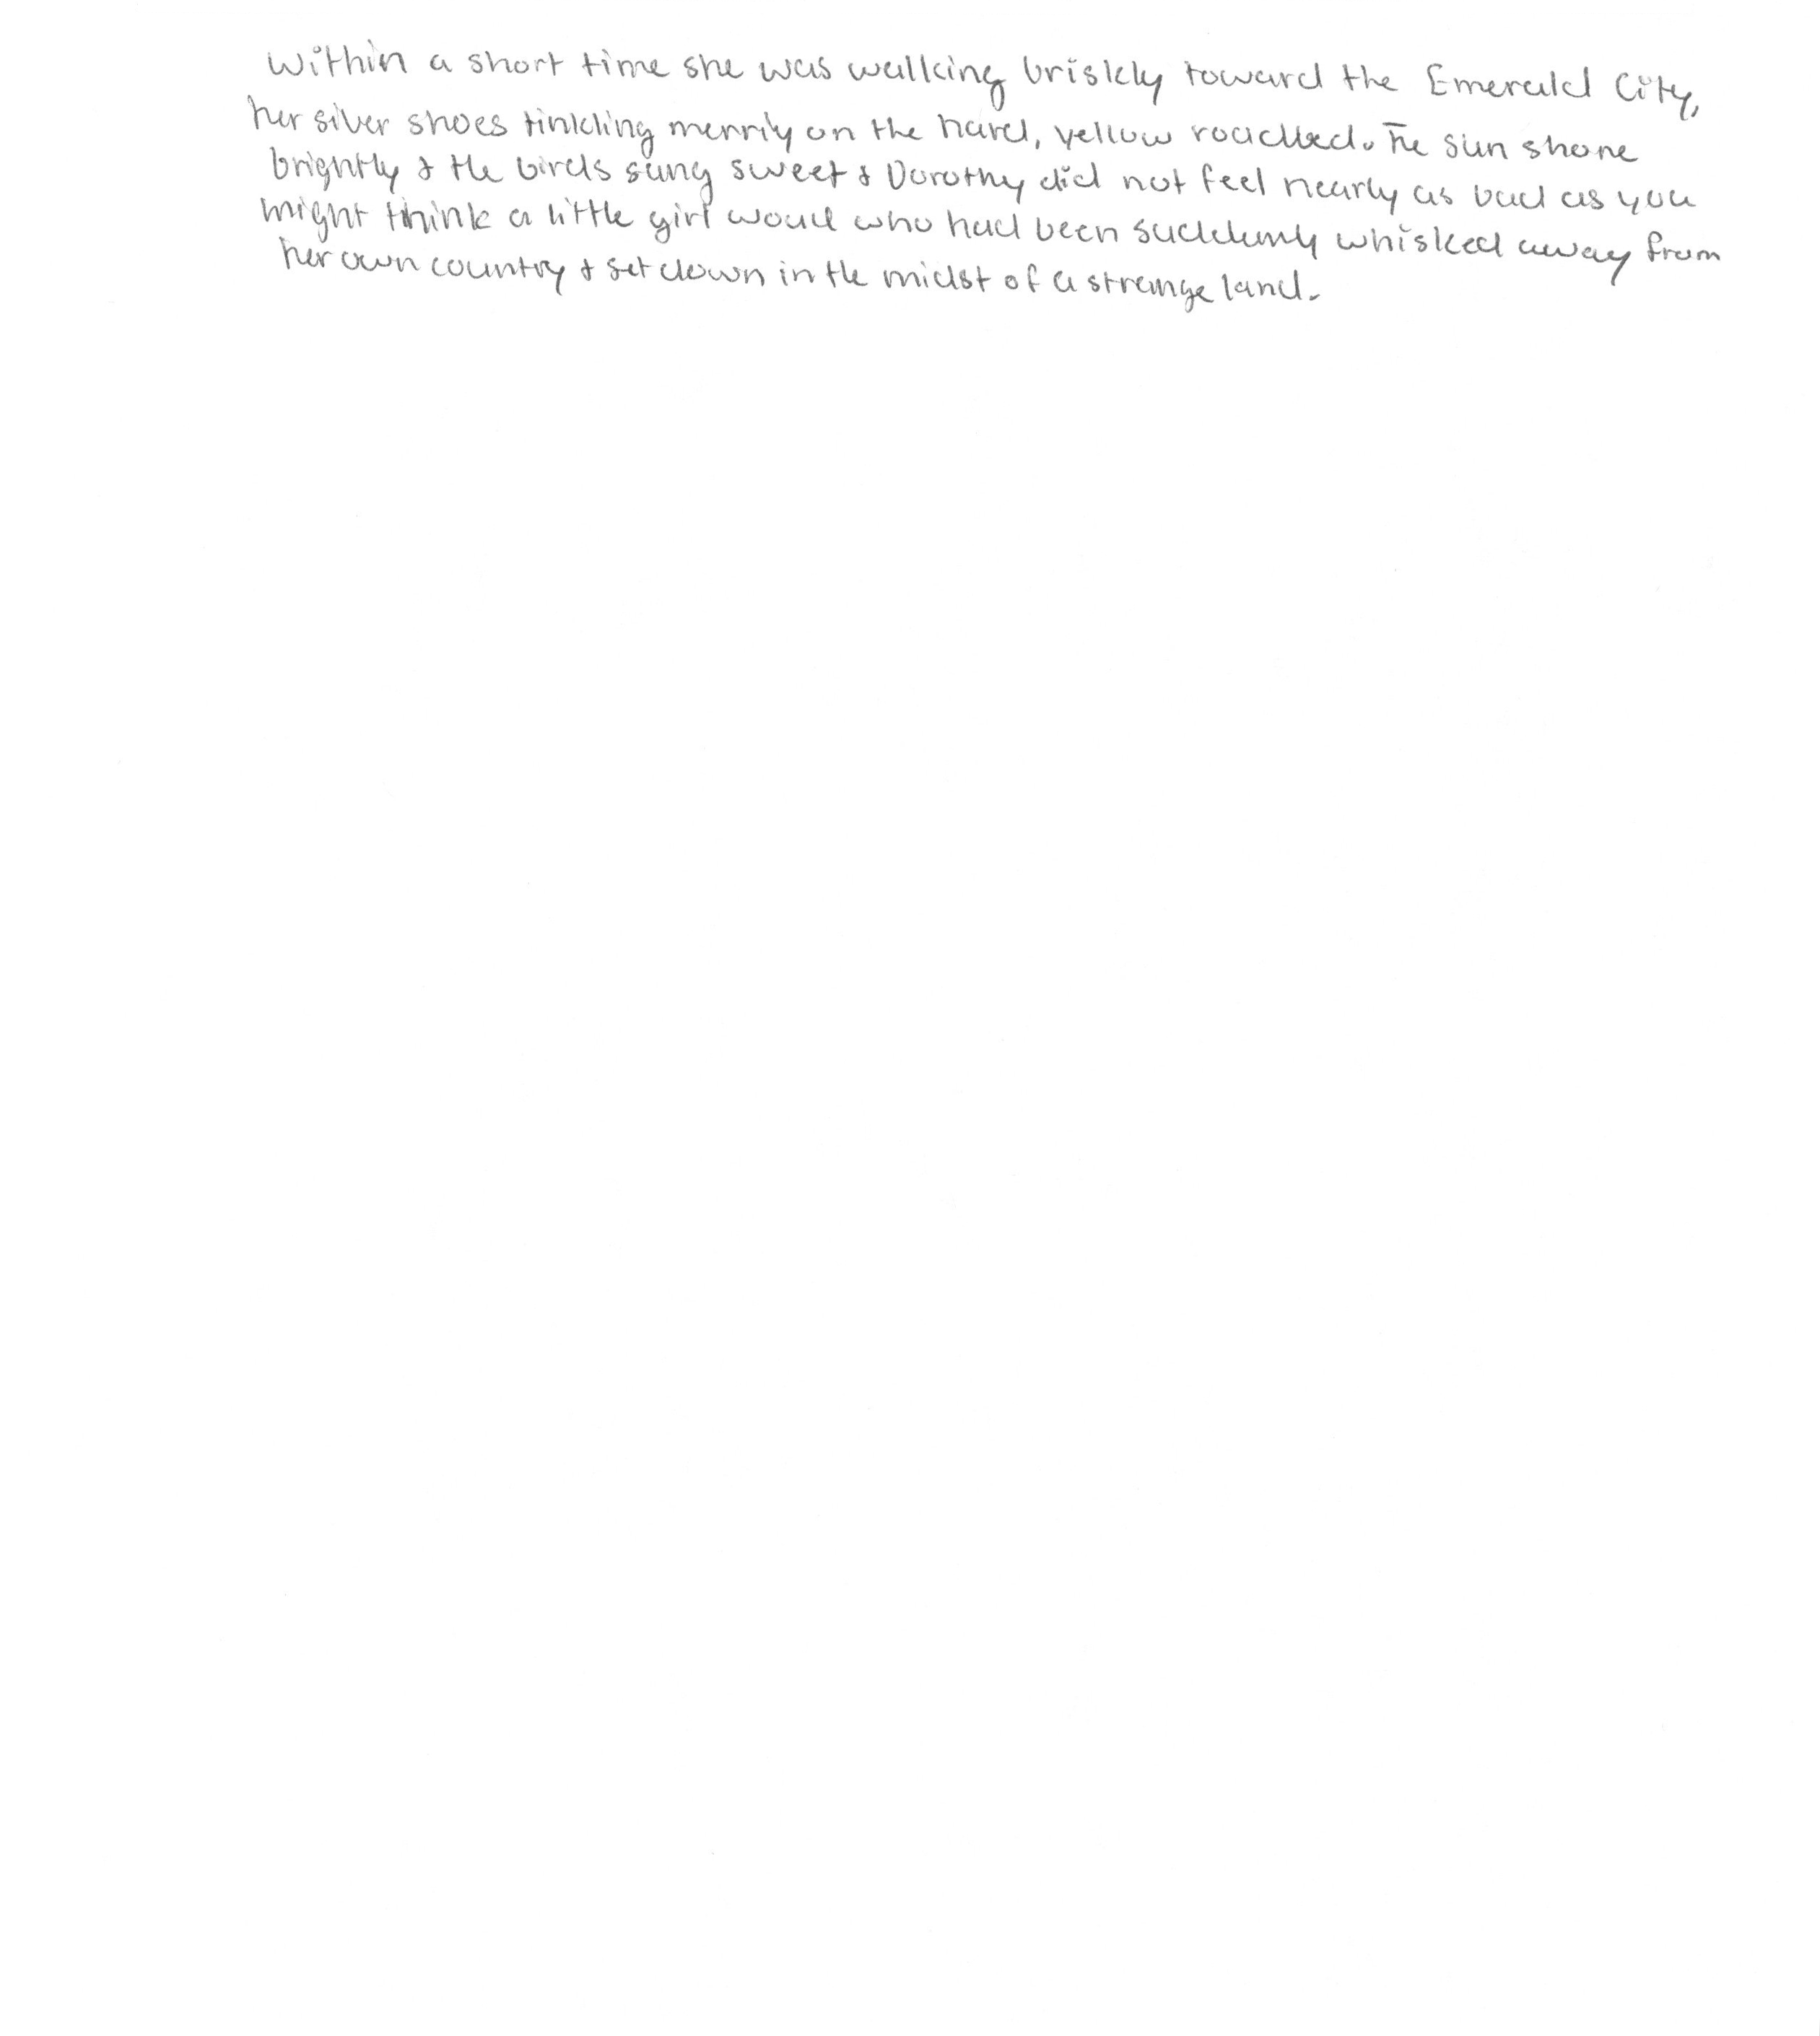 Within a short time she was walking briskly toward the Emerald City,
her silver shoes tinkling merrily on the hard, yellow roadbed. The sun shone
brightly & the birds sang sweet & Dorothy did not feel nearly as bad as you
might think a little girl would who had been suddenly whisked away from
her own country & set down in the midst of a strange land.